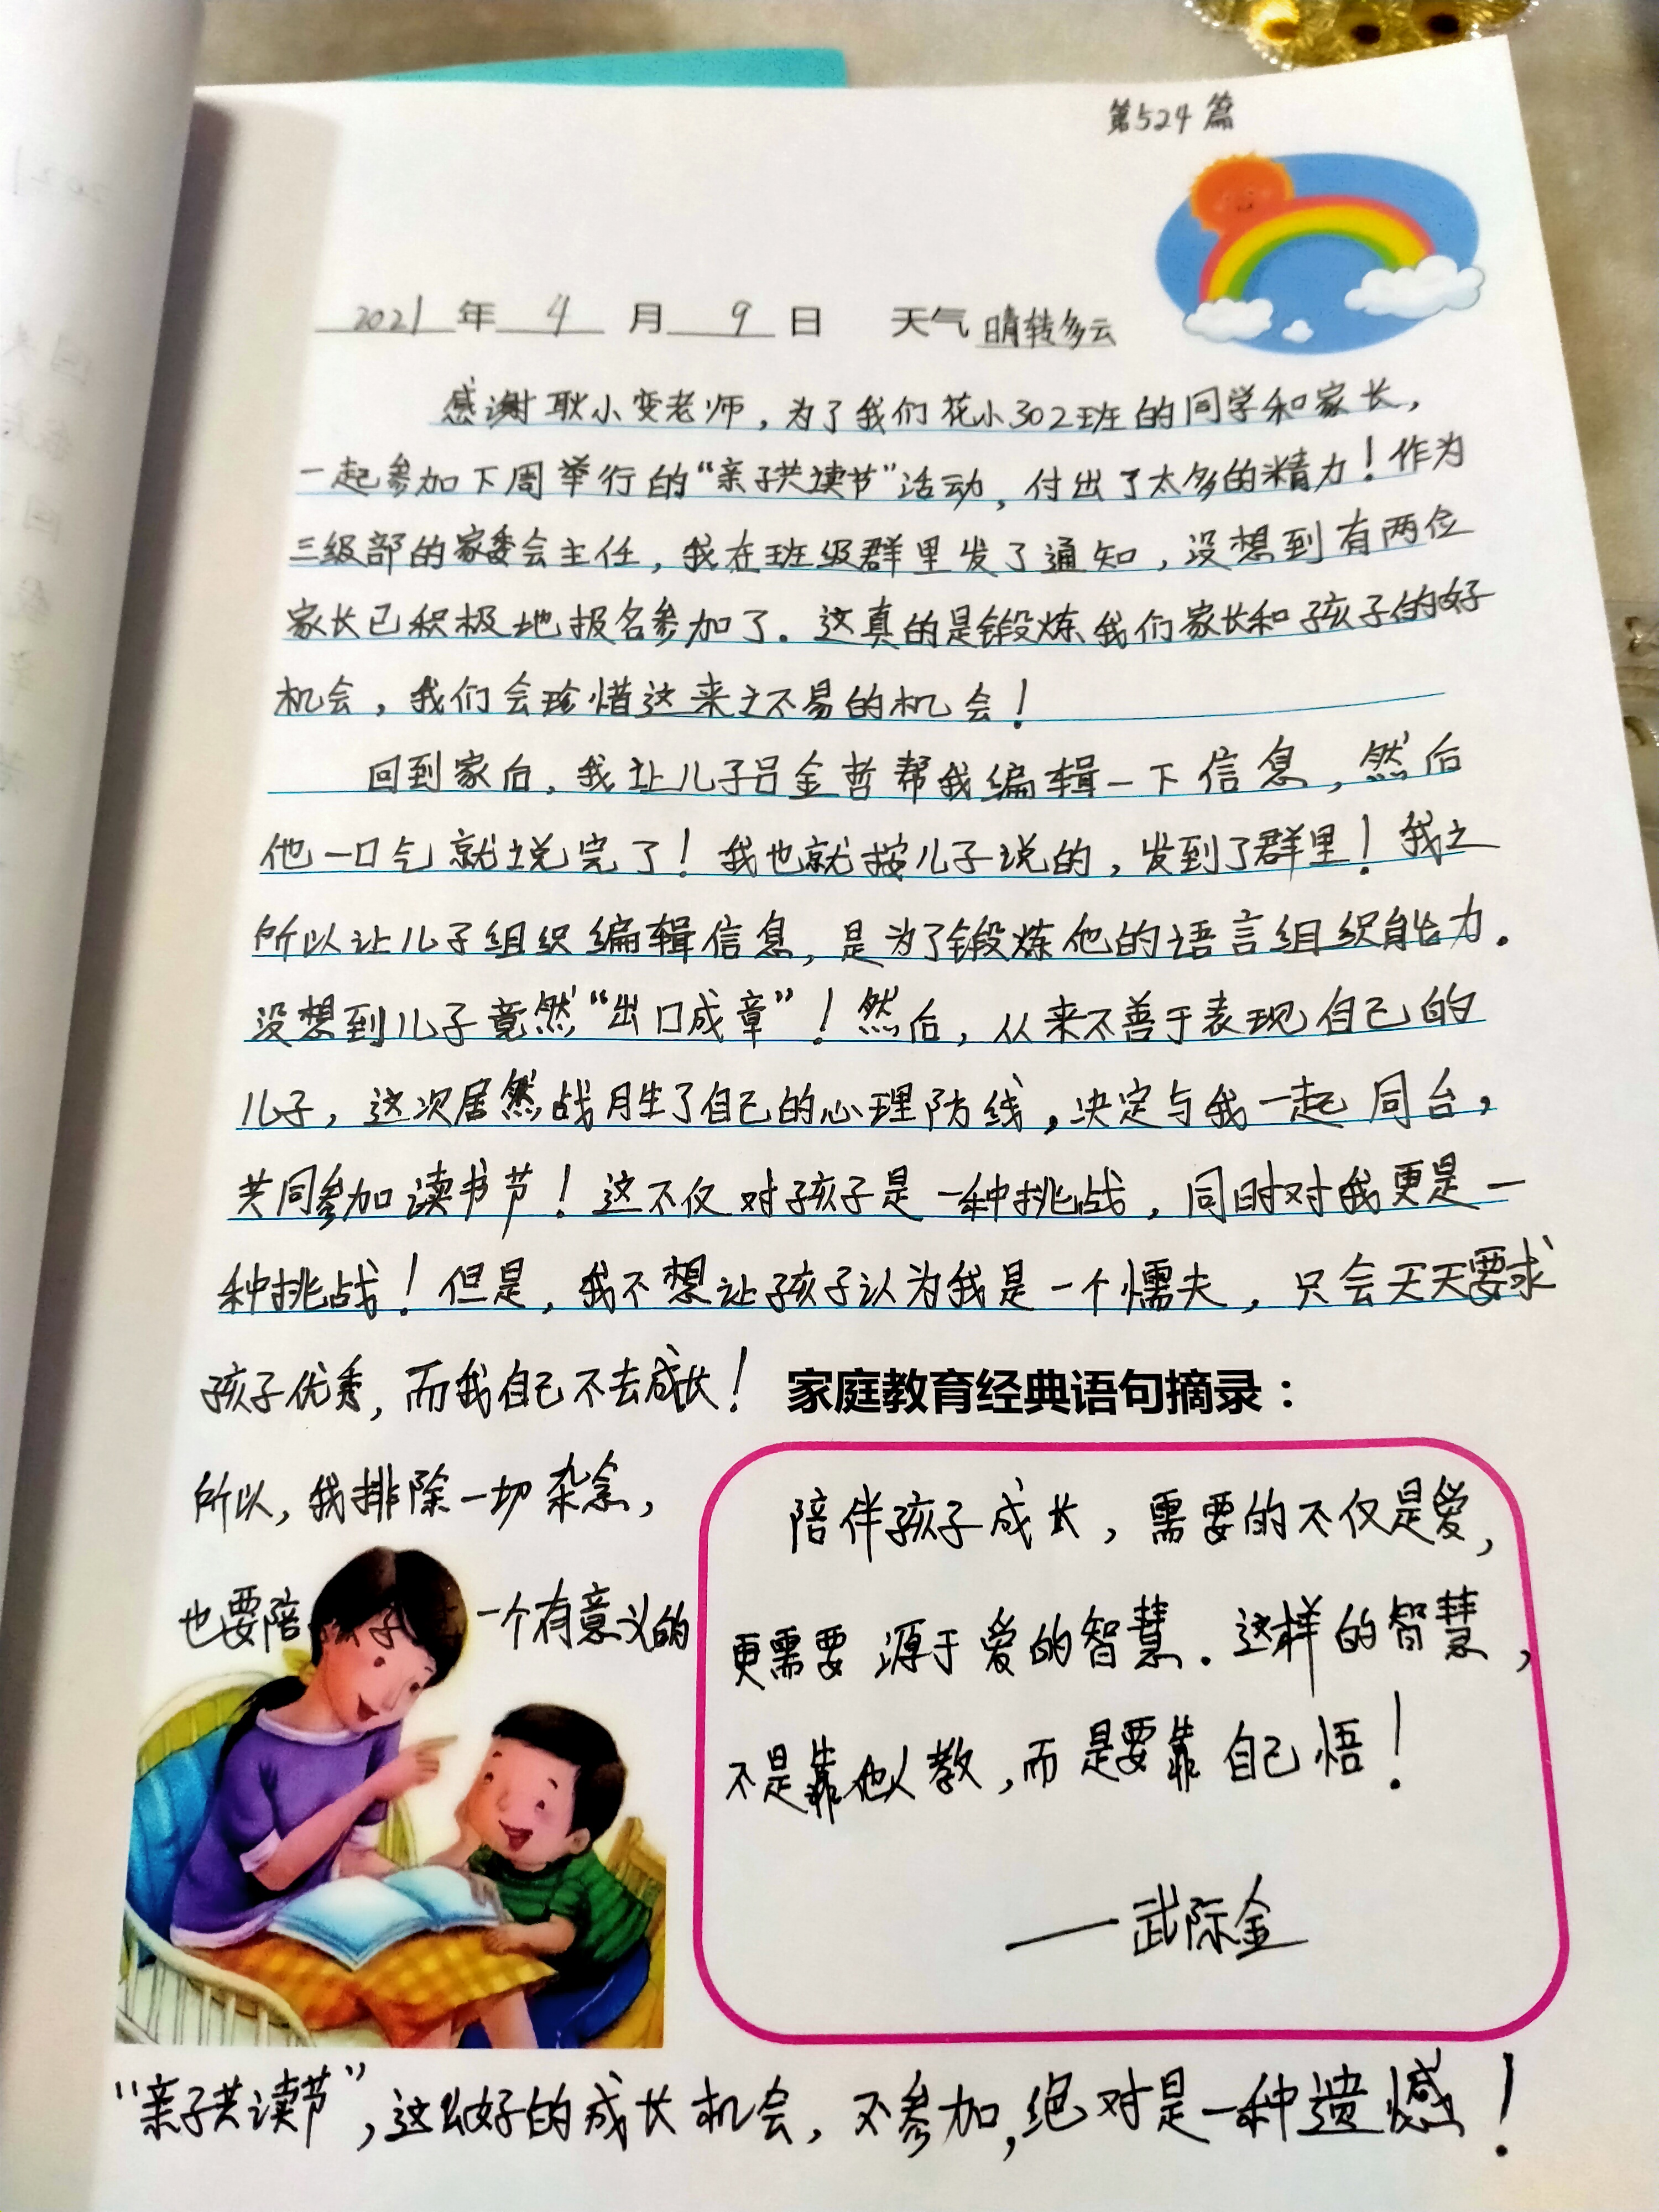 第524篇
2021年4月9日 天气晴转多云
感谢耿小变老师，为了我们花小302班的同学和家长，
一起参加下周举行的“亲子共读节”活动，付出了太多的精力！作为
三级部的家委会主任，我在班级群里发了通知，没想到有两位
家长已积极地报名参加了。这真的是锻炼我们家长和孩子的好
机会，我们会珍惜这来之不易的机会！
回到家后，我让儿子吕金哲帮我编辑一下信息，然后
他一口气就说完了！我也就按儿子说的，发到了群里！我之
所以让儿子组织编辑信息，是为了锻炼他的语言组织能力。
没想到儿子竟然“出口成章”！然后，从来不善于表现自己的
儿子，这次居然战胜了自己的心理防线，决定与我一起同台，
共同参加读书节！这不仅对孩子是一种挑战，同时对我更是一
种挑战！但是，我不想让孩子认为我是一个懦夫，只会天天要求
孩子优秀，而我自己不去成长！
所以，我排除一切杂念，
也要陪儿子一个有意义的
家庭教育经典语句摘录：
陪伴孩子成长，需要的不仅是爱，
更需要源于爱的智慧。这样的智慧，
不是靠他人教，而是要靠自己悟！
——武际金
“亲子共读节”，这么好的成长机会，不参加，绝对是一种遗憾！